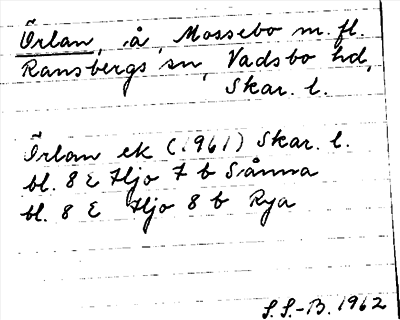 Örlan, å, Mossebo m. fl.
Ransbergs sn, Vadsbo hd,
Skar. l.
Örlan ek (1961) Skar. l.
bl. 8 E Hjo 7 b Sånna
bl. 8 E Hjo 8 b Rya
S.S.-B. 1962